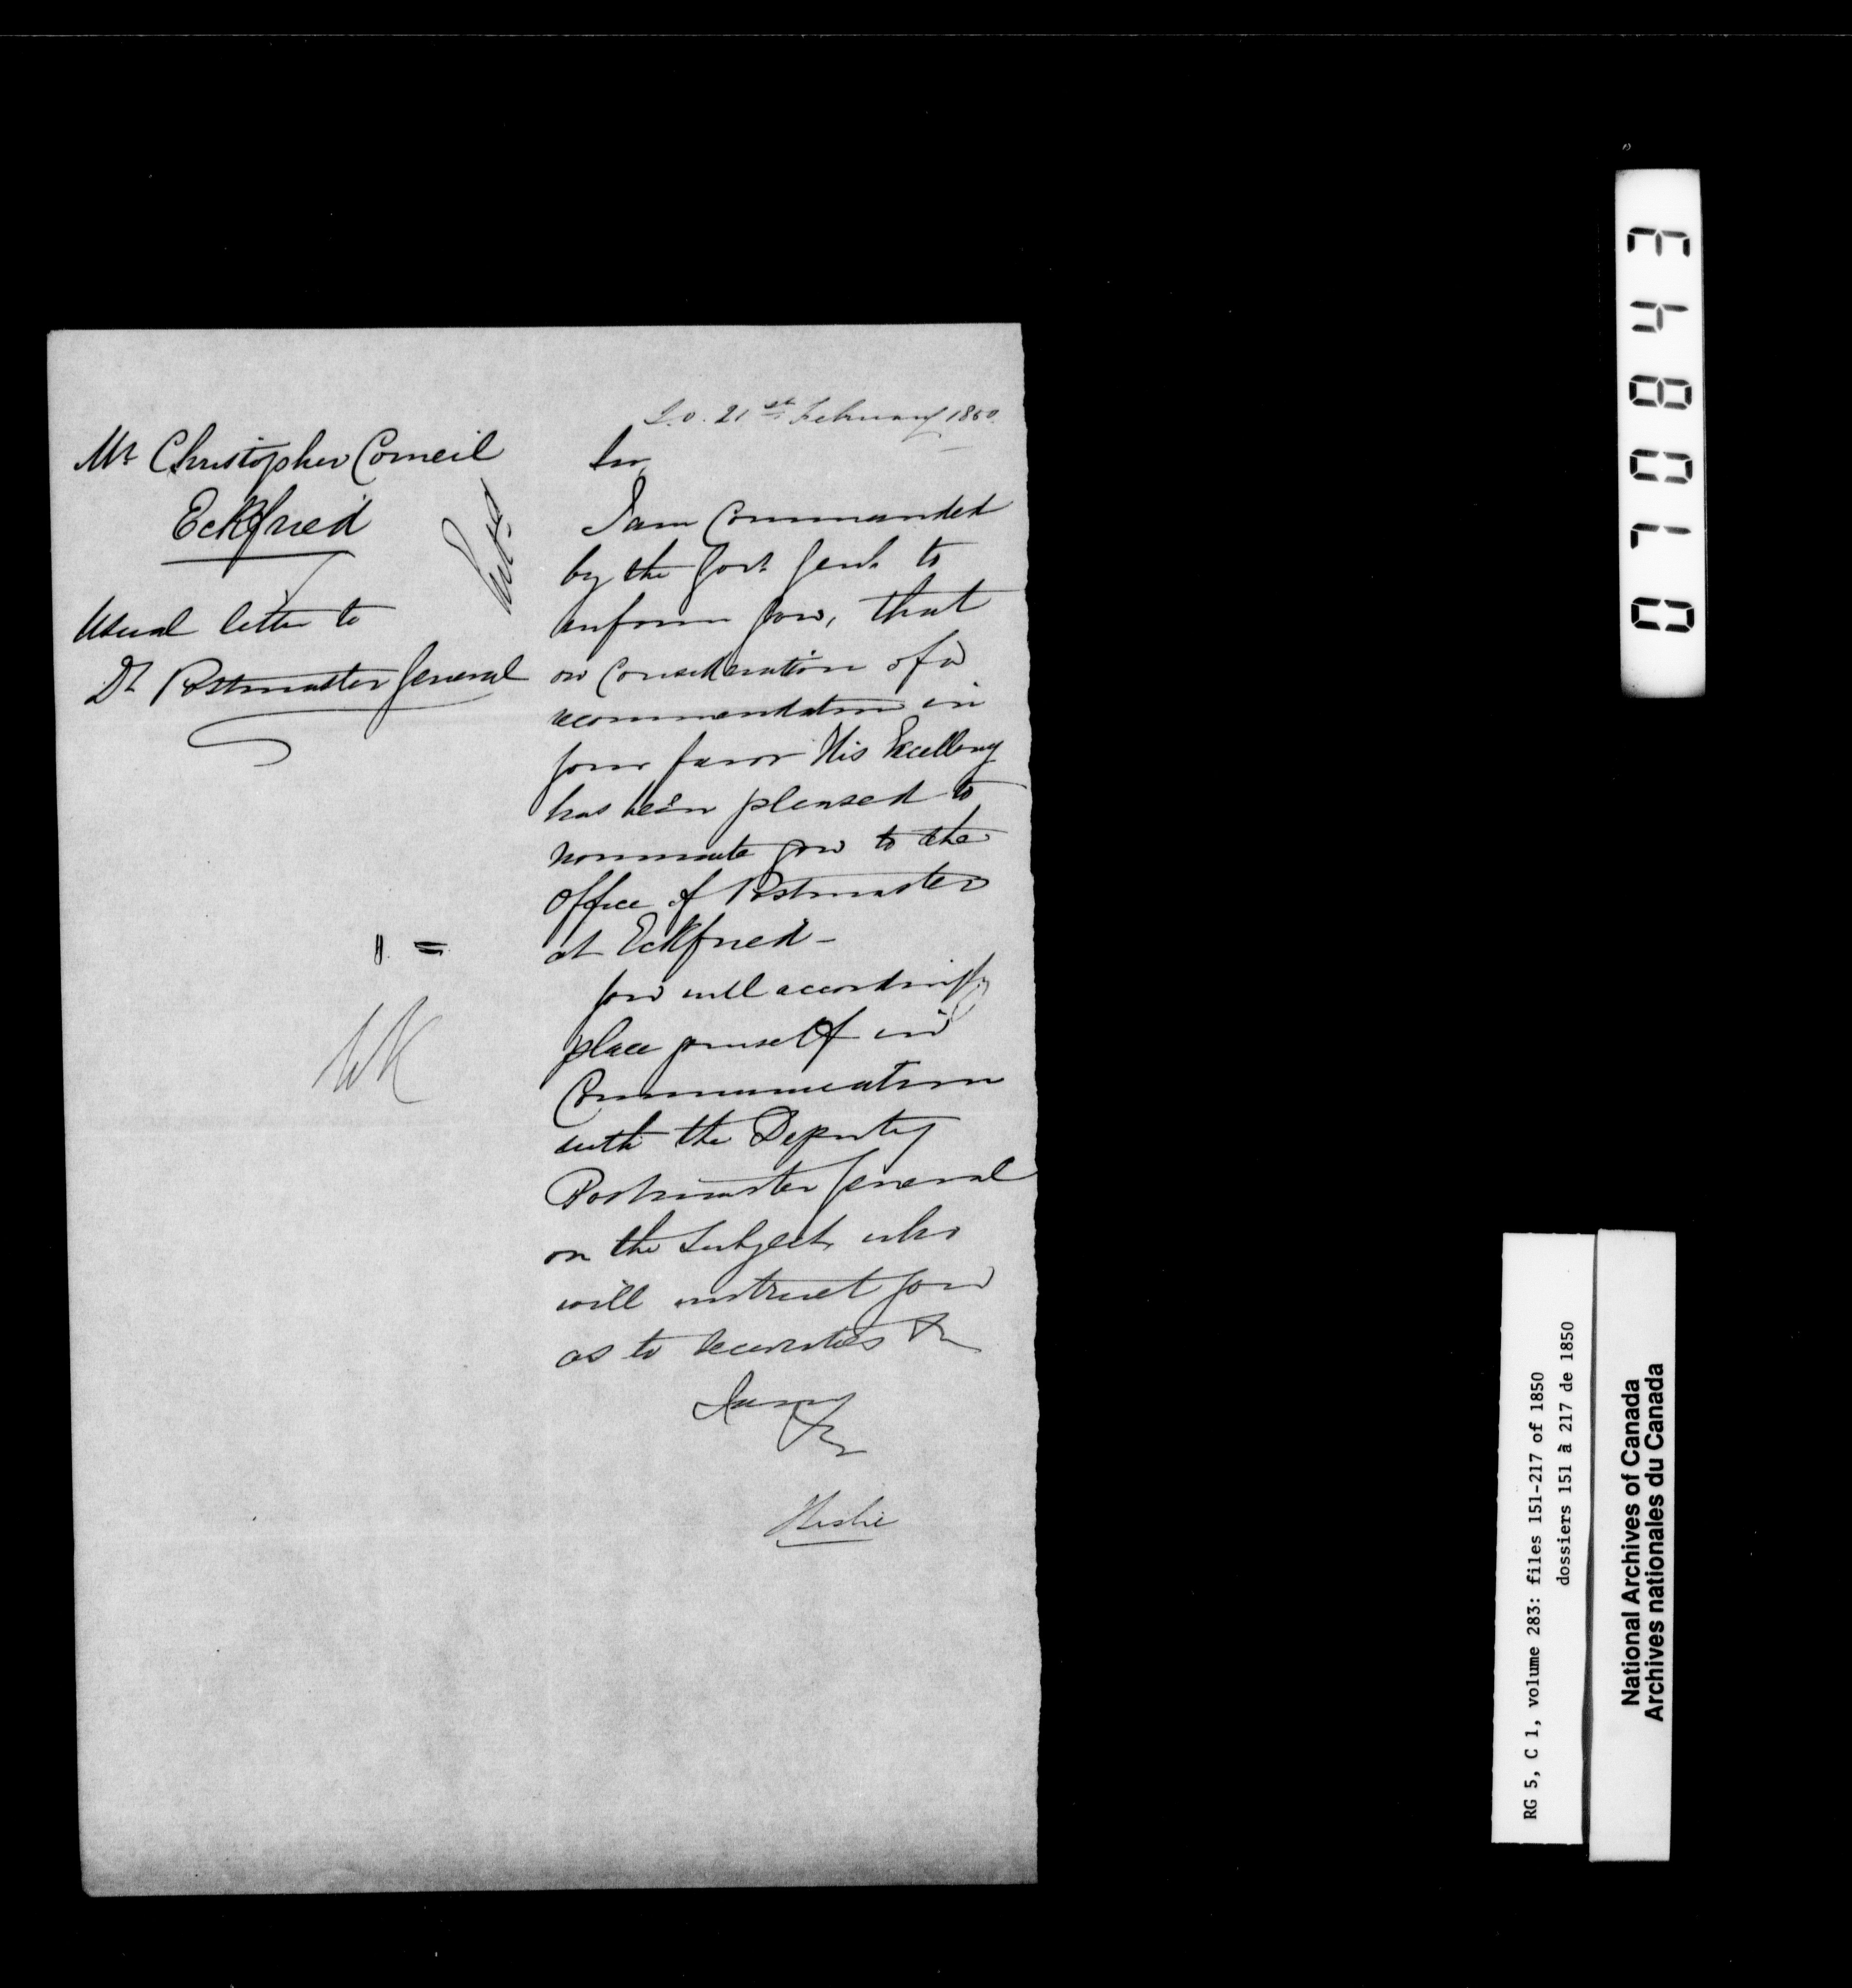 S.O. 21st February 1850.
Mr Christopher Corneil
Eckfried
Usual letter to
Dy Postmaster General
Sir,
I am Commanded
by the Govr Genl to
inform you, that
on Consideration of a
recommendation in
your favor His Excellency
has been pleased to
nominate you to the
Office of Postmaster
at Eckfried -
You will accordingly
place yourself in
Communication
with the Deputy
Postmaster General
on the Subject, who
will instruct you
as to securities &c
I am
&c
JLeslie
WK
017 0843
RG 5, C 1, volume 283: files 151-217 of 1850
dossiers 151 à 217 de 1850
National Archives of Canada
Archives nationales du Canada